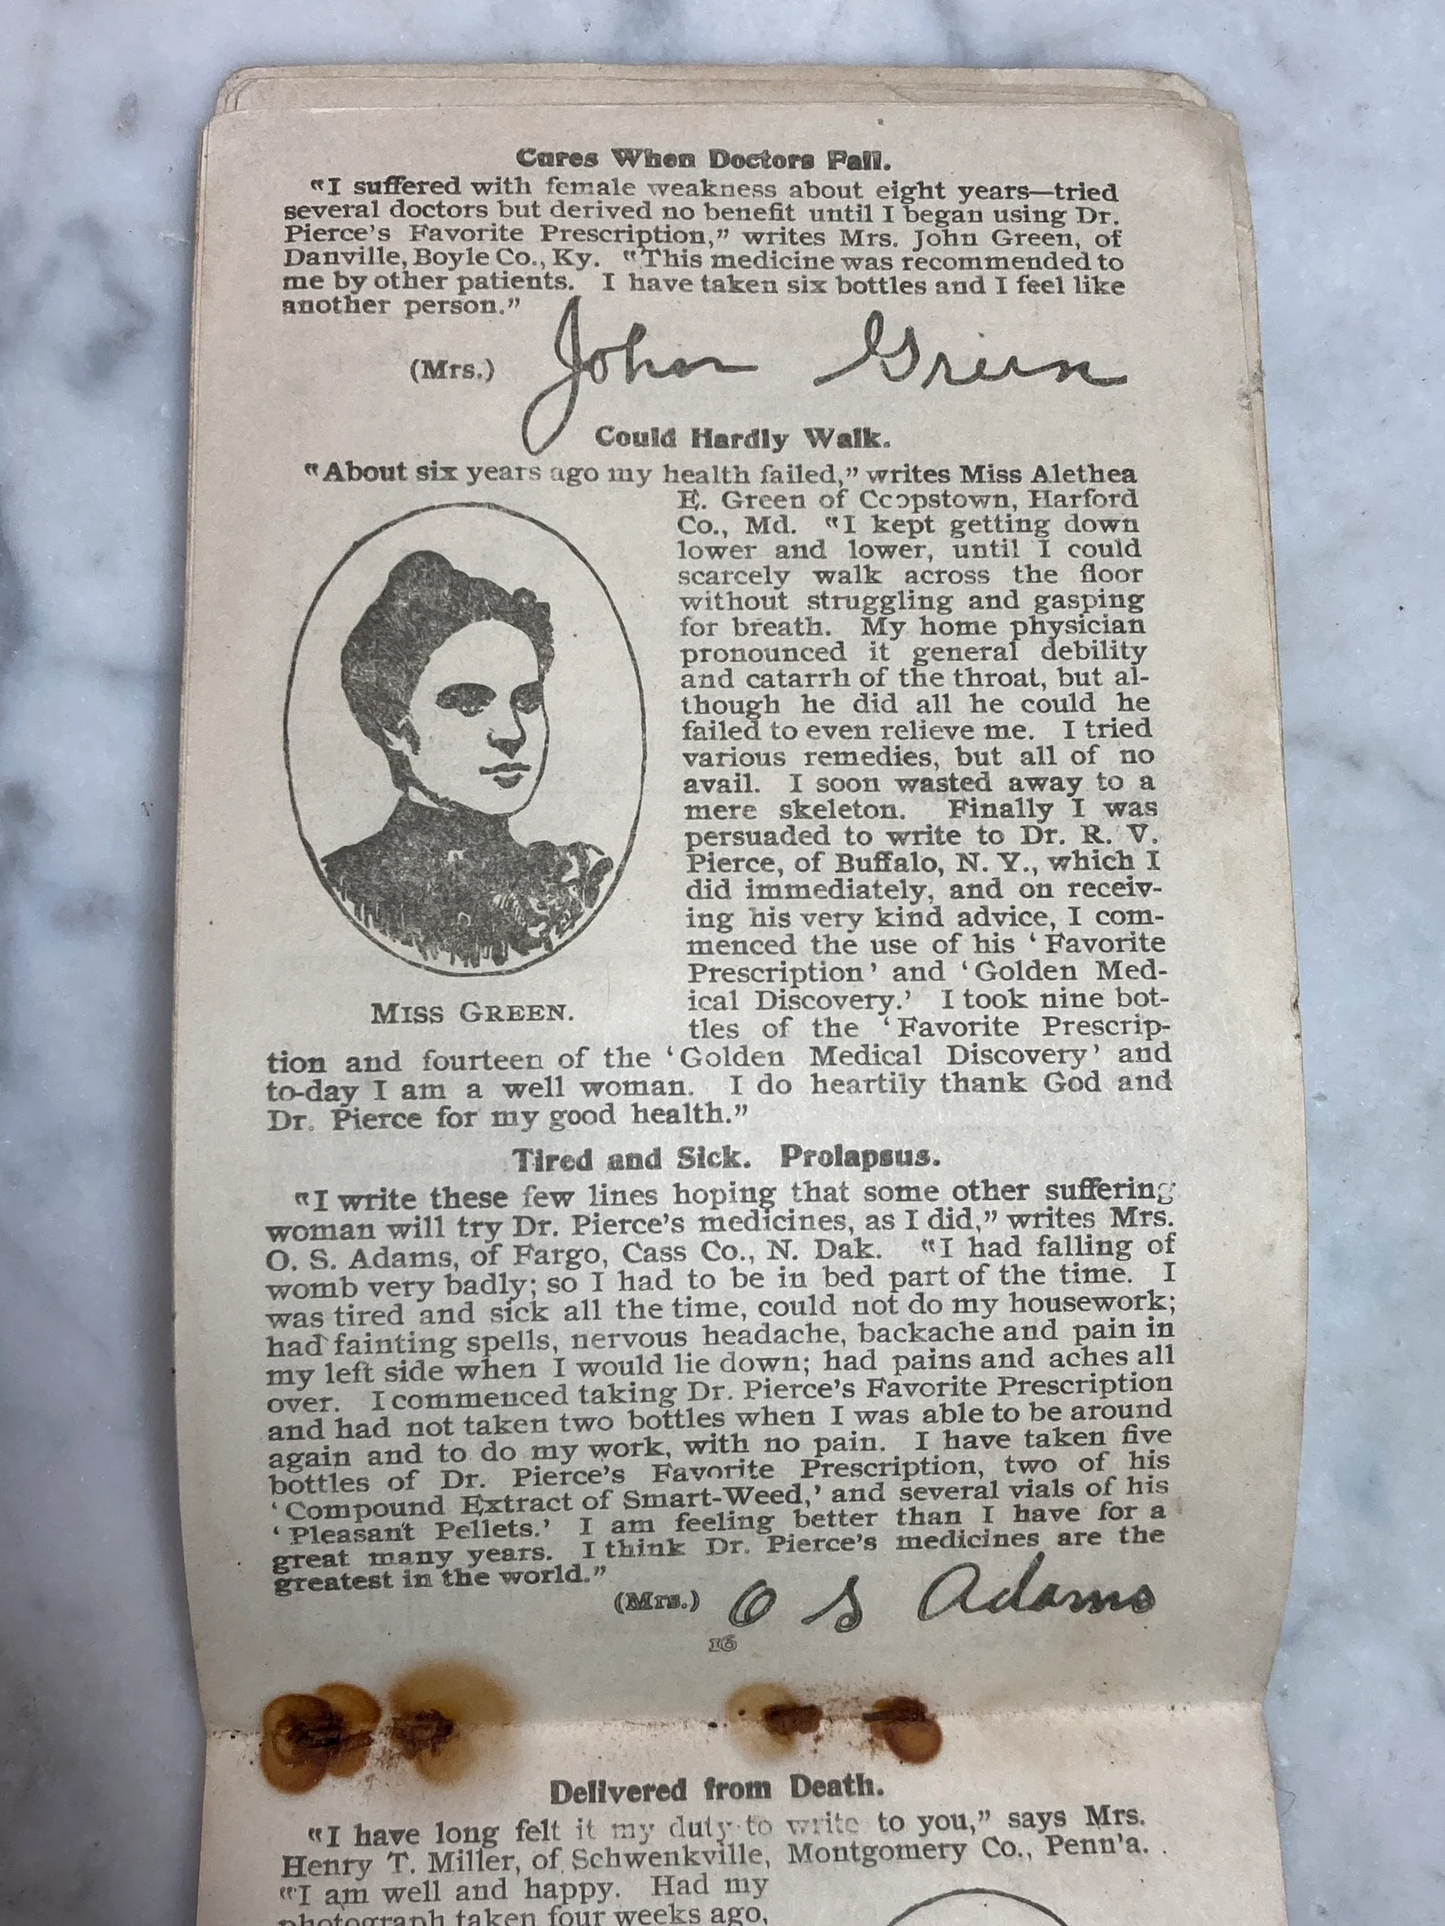 Cures When Doctors Fail.
"I suffered with female weakness about eight years—tried
several doctors but derived no benefit until I began using Dr.
Pierce's Favorite Prescription," writes Mrs. John Green, of
Danville, Boyle Co., Ky. "This medicine was recommended to
me by other patients. I have taken six bottles and I feel like
another person."
(Mrs.) John Green
Could Hardly Walk.
"About six years ago my health failed," writes Miss Alethea
E. Green of Coopstown, Harford
Co., Md. "I kept getting down
lower and lower, until I could
scarcely walk across the floor
without struggling and gasping
for breath. My home physician
pronounced it general debility
and catarrh of the throat, but al-
though he did all he could he
failed to even relieve me. I tried
various remedies, but all of no
avail. I soon wasted away to a
mere skeleton. Finally I was
persuaded to write to Dr. R. V.
Pierce, of Buffalo, N. Y., which I
did immediately, and on receiv-
ing his very kind advice, I com-
menced the use of his 'Favorite
Prescription' and 'Golden Med-
ical Discovery.' I took nine bot-
tles of the 'Favorite Prescrip-
MISS GREEN.
tion and fourteen of the 'Golden Medical Discovery' and
to-day I am a well woman. I do heartily thank God and
Dr. Pierce for my good health."
Tired and Sick. Prolapsus.
"I write these few lines hoping that some other suffering
woman will try Dr. Pierce's medicines, as I did," writes Mrs.
O. S. Adams, of Fargo, Cass Co., N. Dak. "I had falling of
womb very badly; so I had to be in bed part of the time. I
was tired and sick all the time, could not do my housework;
had fainting spells, nervous headache, backache and pain in
my left side when I would lie down; had pains and aches all
over. I commenced taking Dr. Pierce's Favorite Prescription
and had not taken two bottles when I was able to be around
again and to do my work, with no pain. I have taken five
bottles of Dr. Pierce's Favorite Prescription, two of his
'Compound Extract of Smart-Weed,' and several vials of his
'Pleasant Pellets.' I am feeling better than I have for a
great many years. I think Dr. Pierce's medicines are the
greatest in the world."
(Mrs.) O S Adams
16
Delivered from Death.
"I have long felt it my duty to write to you," says Mrs.
Henry T. Miller, of Schwenkville, Montgomery Co., Penn'a.
"I am well and happy. Had my
photograph taken four weeks ago,